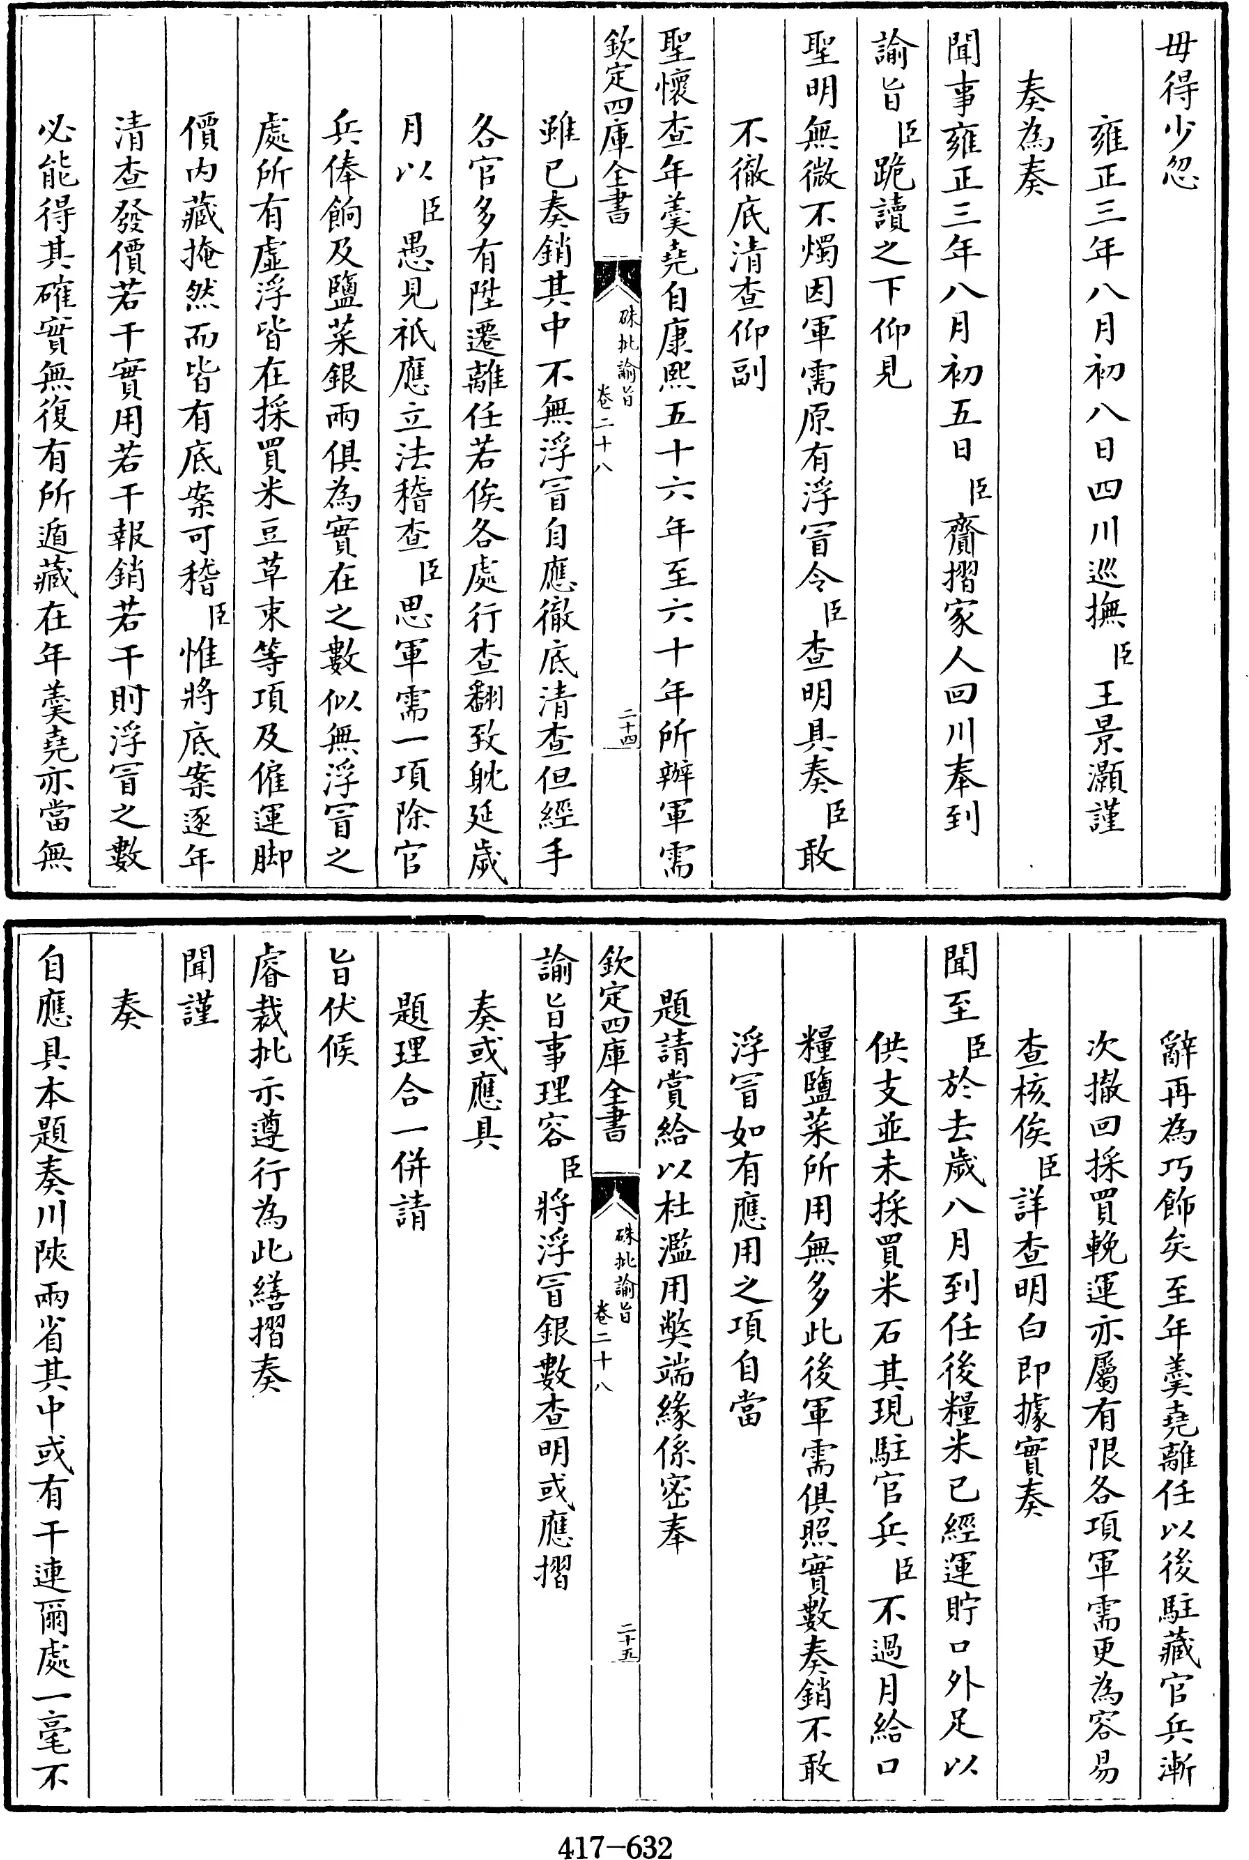 毋得少忽
雍正三年八月初八日四川巡撫臣王景灝謹
奏為奏
聞事雍正三年八月初五日臣齎摺家人回川奉到
諭旨臣跪讀之下仰見
聖明無微不燭因軍需原有浮冒令臣查明具奏臣敢
不徹底清查仰副
聖懷查年羮堯自康熙五十六年至六十年所辦軍需
欽定四庫全書
硃批諭旨
卷二十八
二十四
雖已奏銷其中不無浮冒自應徹底清查但經手
各官多有陞遷離任若俟各處行查翻致躭延歲
月以臣愚見祇應立法稽查臣思軍需一項除官
兵俸餉及鹽菜銀兩俱為實在之數似無浮冒之
處所有虛浮皆在採買米豆草束等項及僱運脚
價內藏掩然而皆有底案可稽臣惟將底案逐年
清查發價若干實用若干報銷若干則浮冒之數
必能得其確實無復有所遁藏在年羮堯亦當無
辭再為巧飾矣至年羮堯離任以後駐藏官兵漸
次撤回採買輓運亦屬有限各項軍需更為容易
查核俟臣詳查明白即據實奏
聞至臣於去歲八月到任後糧米已經運貯口外足以
供支並未採買米石其現駐官兵臣不過月給口
糧鹽菜所用無多此後軍需俱照實數奏銷不敢
浮冒如有應用之項自當
題請賞給以杜濫用獘端緣係密奉
欽定四庫全書
硃批諭旨
卷二十八
二十五
諭旨事理容臣將浮冒銀數查明或應摺
奏或應具
題理合一併請
旨伏候
睿裁批示遵行為此繕摺奏
聞謹
奏
自應具本題奏川陝兩省其中或有干連爾處一毫不
417-632